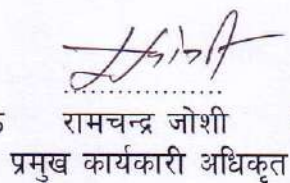 रामचन्द्र जोशी
प्रमुख कार्यकारी अधिकृत